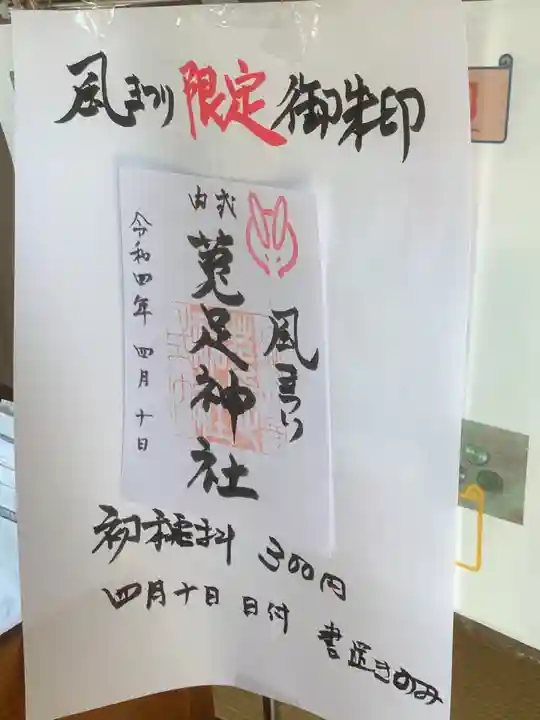 風まつり限定御朱印
風まつり
菟足神社
令和四年 四月十日
初穂料 300円
四月十日 日付 書置きのみ